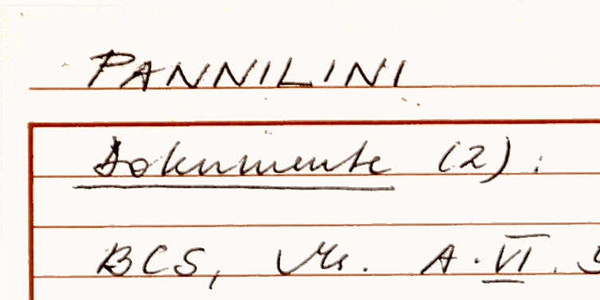 PANNILINI
Dokumente (2):
BCS, Ms. A.VI.